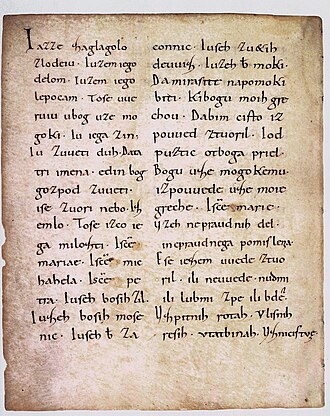 Iazze zaglagolo
zlodeiu. Iuzem iego
delom. Iuzem iego
lepocam. Tose uue
ruiu ubog uze mo
goki. Iu iega zin.
Iu zuueti duh. Data
tri imena. edin bog
gozpod zuueti.
ise zuori nebo
emlo. Tose izco ie
ga milozti. Isce
mariae. Isce mic
hahela. Isce pe
tra. Iuseh bosih zil.
Iuzeh bosih mose
nic. Iuseh ƀ za
connic. Iuseh zu&ih
deuuiz. Iuzeh ƀ moki.
Da mirasite napomoki
biti. Kibogu moih gre
chou. Dabim cisto iz
pouued ztuoril. Iod
puztic otboga priel.
Bogu uze mogokemu.
izpouuede uze moie
greche. Isce marie.
uzeh nepraudnih del.
inepraudnega pomislenia.
Ese iezem uuede ztuo
ril. ili neuuede. nudmi
ili lubmi zpe ili bde.
Uzpitnih rotah. Vlisnih
resih. Vtatbinah. Uznicistue.